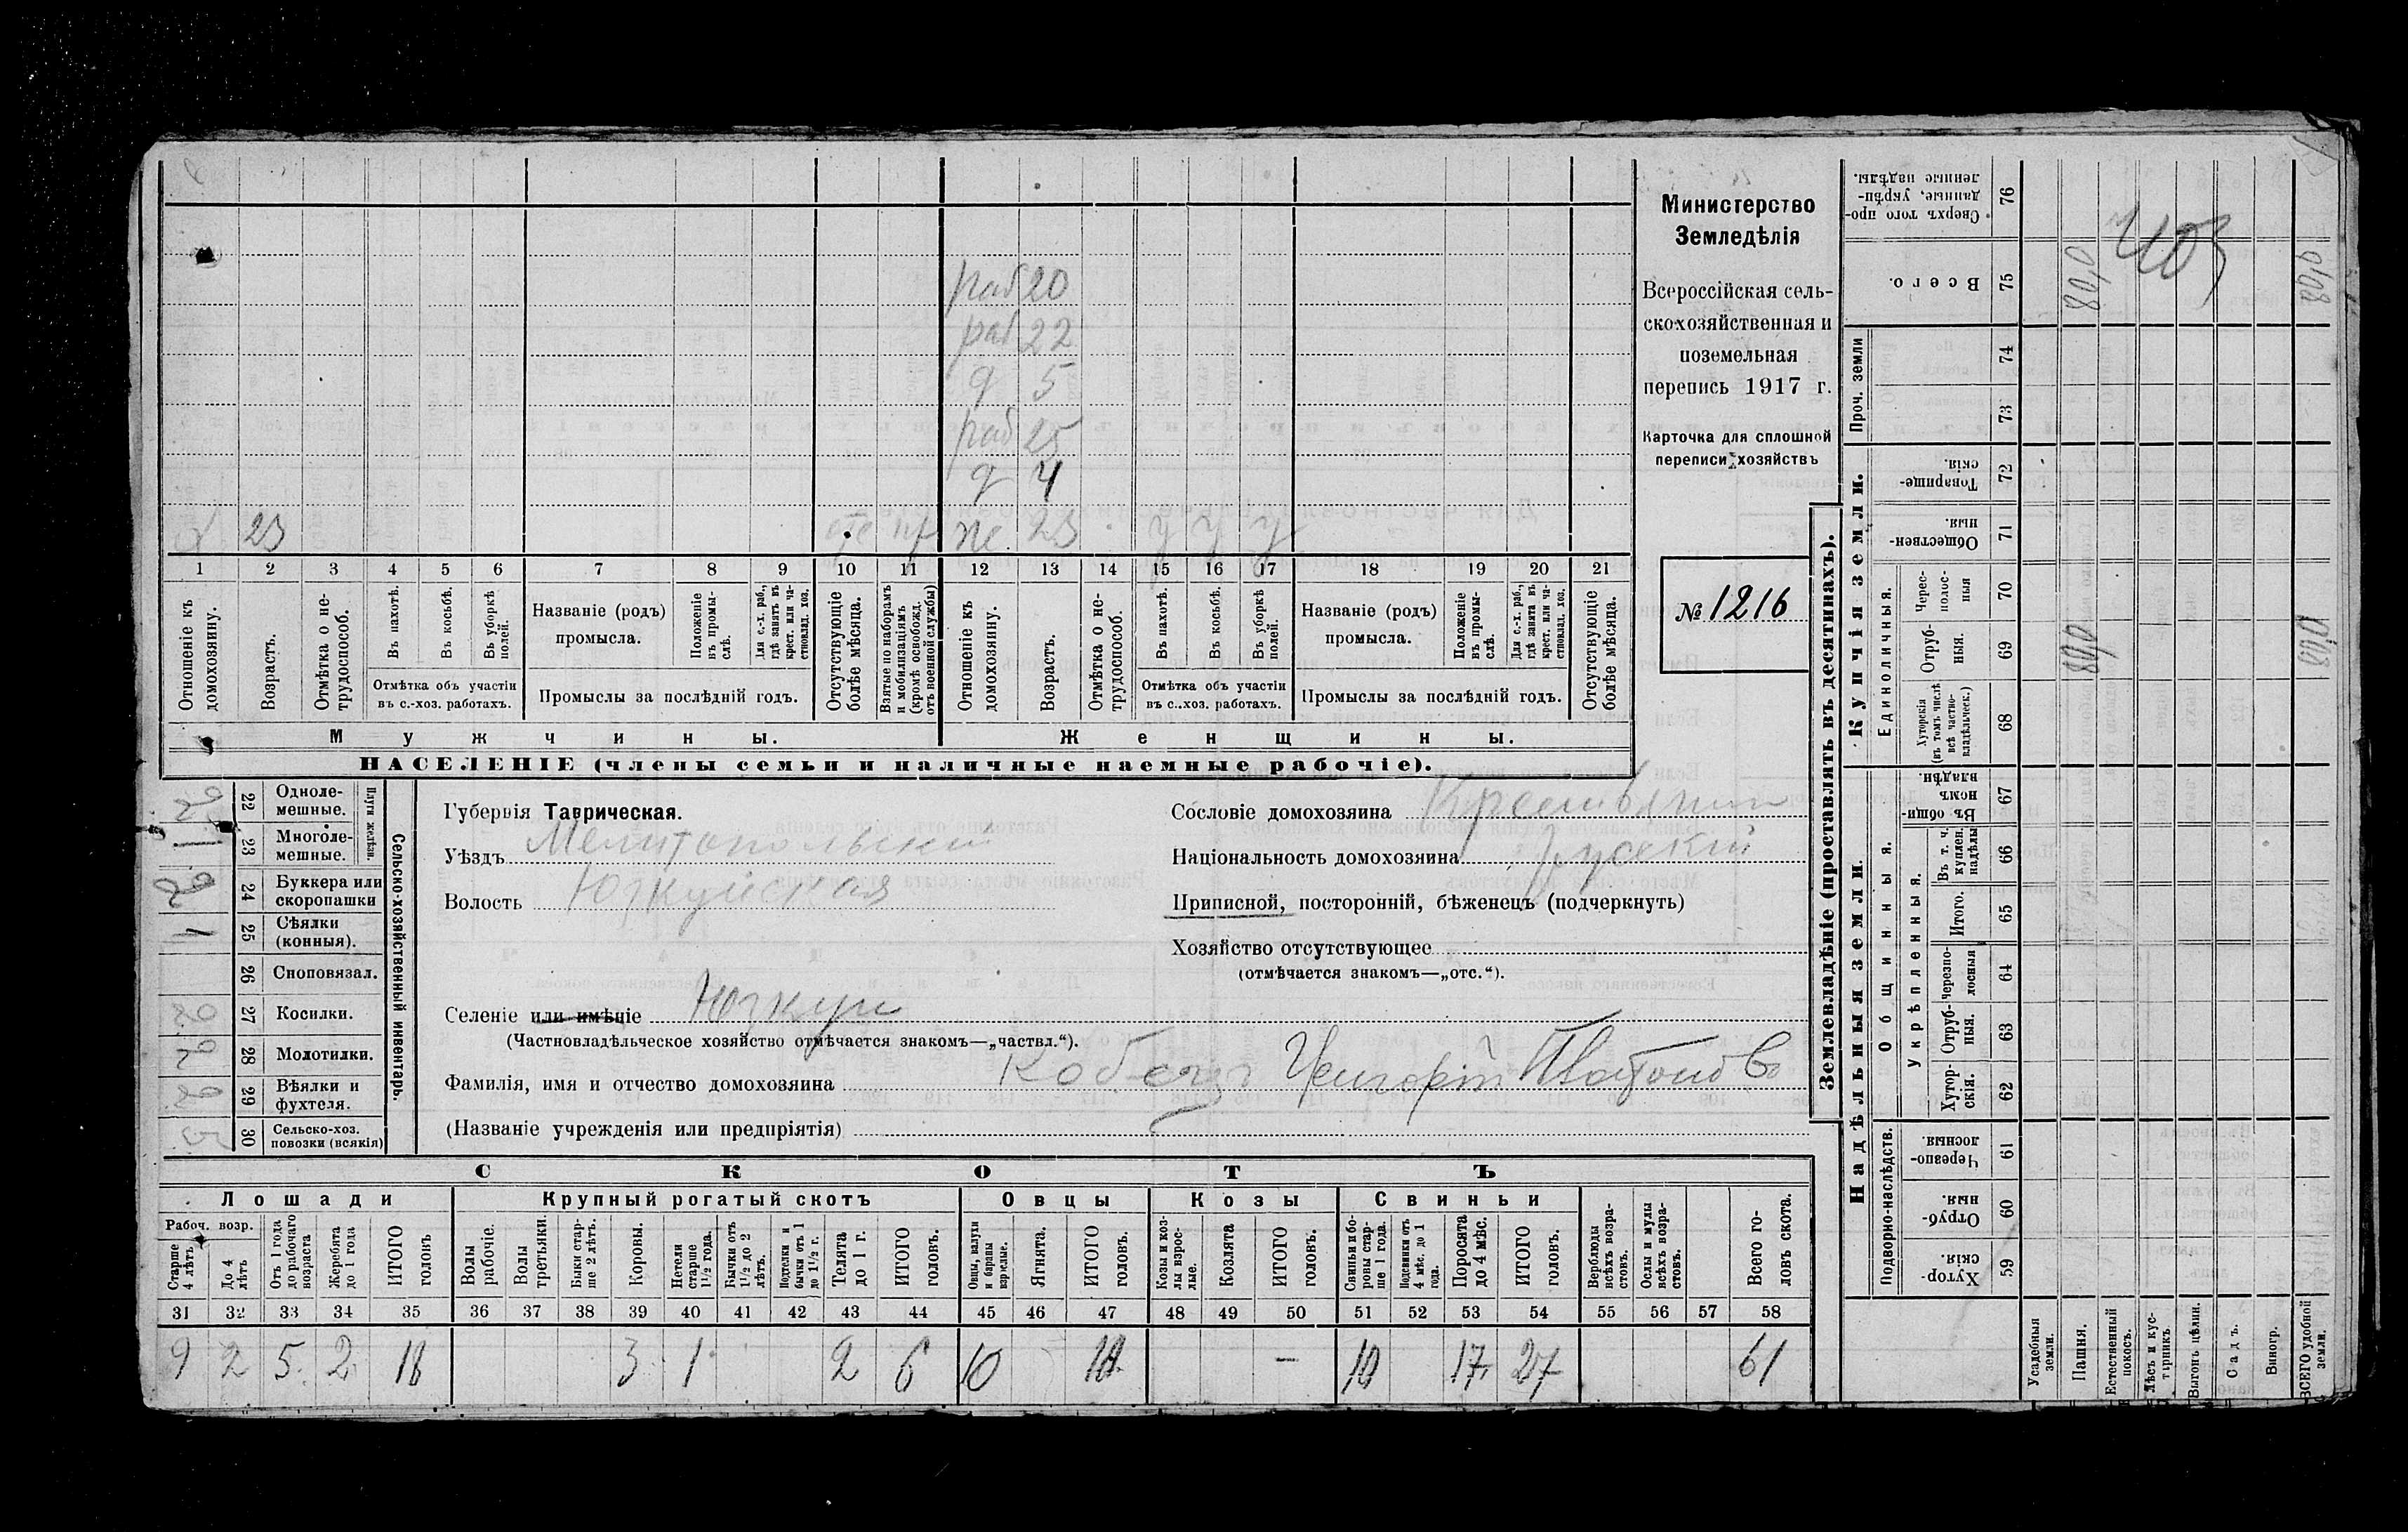 раб 20
раб 22
д 5
раб 25
д 4
х 23 отс пр же 23 у у у
1 2 3 4 5 6 7 8 9 10 11 12 13 14 15 16 17 18 19 20 21
Отношеніе къ домохозяину.
Возрастъ.
Отмѣтка о не-трудоспособ.
Въ пахотѣ.
Въ косьбѣ.
Въ уборкѣ полей.
Отмѣтка объ участіи
въ с.-хоз. работахъ.
Названіе (родъ)
промысла.
Положеніе въ промы-слѣ.
Для с.-х. раб., гдѣ занятъ въ крест. или ча-стновлад. хоз.
Промыслы за послѣдній годъ.
Отсутствующіе болѣе мѣсяца.
Взятые по наборамъ и мобилизаціямъ (кромѣ освобожд. отъ военной службы)
Отношеніе къ домохозяину.
Возрастъ.
Отмѣтка о не-трудоспособ.
Въ пахотѣ.
Въ косьбѣ.
Въ уборкѣ полей.
Отмѣтка объ участіи
въ с..хоз. работахъ.
Названіе (родъ)
промысла.
Положеніе въ промы-слѣ.
Для с.-х. раб., гдѣ занята въ крест. или ча-стновлад. хоз.
Промыслы за послѣдній годъ.
Отсутствующіе болѣе мѣсяца.
Мужчины.
Женщины.
НАСЕЛЕНІЕ (члены семьи и наличные наемные рабочіе).
Министерство
Земледѣлія
Всероссійская сель-
скохозяйственная и
поземельная
перепись 1917 г.
Карточка для сплошной
переписи хозяйствъ
№ 1216
Сельско-хозяйственный инвентарь.
Плуги желѣзн.
22 Однолемешные. 2
23 Многолемешные. 1
24 Буккера или скоропашки 2
25 Сѣялки (конныя). 1
26 Сноповязал.
27 Косилки. 2
28 Молотилки. 2
29 Вѣялки и фухтеля. 2
30 Сельско-хоз. повозки (всякія) 5
Губернія Таврическая.
Уѣздъ Мелитопольскій
Волость Юзкуйская
Селеніе или имѣніе Юзкуи
(Частновладѣльческое хозяйство отмѣчается знакомъ—„частвл.“).
Фамилія, имя и отчество домохозяина Кобезъ Григорій Платонов
(Названіе учрежденія или предпріятія)
Сословіе домохозяина Крестьянин
Національность домохозяина Русскій
Приписной, посторонній, бѣженецъ (подчеркнуть)
Хозяйство отсутствующее
(отмѣчается знакомъ—„отс.“).
СКОТЪ
Лошади
Рабоч. возр.
Старше 4 лѣтъ
До 4 лѣтъ
Отъ 1 года до рабочаго возраста
Жеребята до 1 года
ИТОГО головъ
Крупный рогатый скотъ
Волы рабочіе.
Волы третьяки.
Быки стар-ше 2 лѣтъ.
Коровы.
Нетели старше 1½ года.
Бычки отъ 1½ до 2 лѣтъ.
Подтелки и бычки отъ 1 до 1½ г.
Телята до 1 г.
ИТОГО головъ.
Овцы
Овцы, валухи и бараны взрослые.
Ягнята.
ИТОГО головъ.
Козы
Козы и коз-лы взрос-лые.
Козлята
ИТОГО головъ.
Свиньи
Свиньи и бо-ровы стар-ше 1 года.
Подсвинки отъ 4 мѣс. до 1 года.
Поросята до 4 мѣс.
ИТОГО головъ.
Верблюды всѣхъ возра-стовъ.
Ослы и мулы всѣхъ возра-стовъ.
Всего го-ловъ скота.
31 32 33 34 35 36 37 38 39 40 41 42 43 44 45 46 47 48 49 50 51 52 53 54 55 56 57 58
9 2 5 2 18 3 1 2 6 10 10 — 10 17 27 61
Землевладѣніе (проставлять въ десятинахъ).
Купчія земли.
Надѣльныя земли.
Сверхъ того про-данные, укрѣп-ленные надѣлы. 76
Всего. 75
Проч. земли 74 73
Товарище-скія. 72
Обществен-ныя. 71
Единоличныя.
Черес-полос-ныя 70
Отруб-ныя. 69
Хуторскія (въ томъ числѣ всѣ частно-владѣльческ.) 68
Общинныя.
Въ общин-номъ владѣн. 67
Укрѣпленныя.
Въ т. ч. куплен. надѣлы 66
Итого. 65
Черезпо-лосныя 64
Отруб-ныя. 63
Хутор-скія. 62
Подворно-наслѣдств.
Черезпо-лосныя. 61
Отруб-ныя. 60
Хутор-скія. 59
Усадебныя земли.
Пашня.
Естественный покосъ.
Лѣсъ и кус-тарникъ
Выгонь цѣлин.
Садъ.
Виногр.
ВСЕГО удобной земли.
80,0
80,0
80,0
80,0